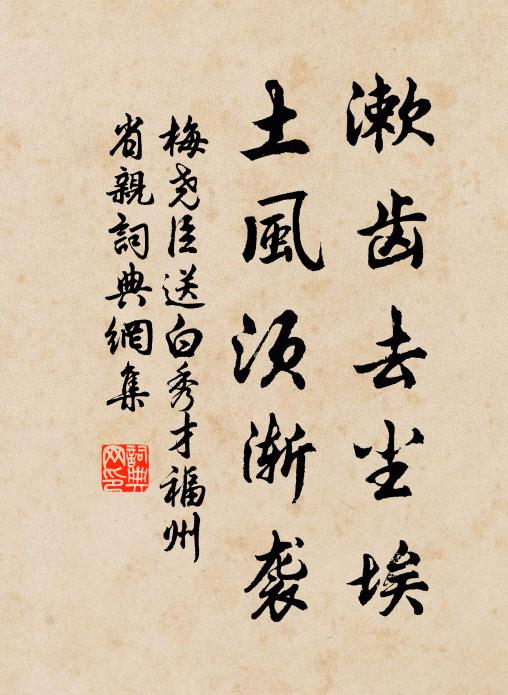 漱齿去尘埃
土風须渐袭
梅尧臣送白秀才福州
省親詞典網集
詞典网印